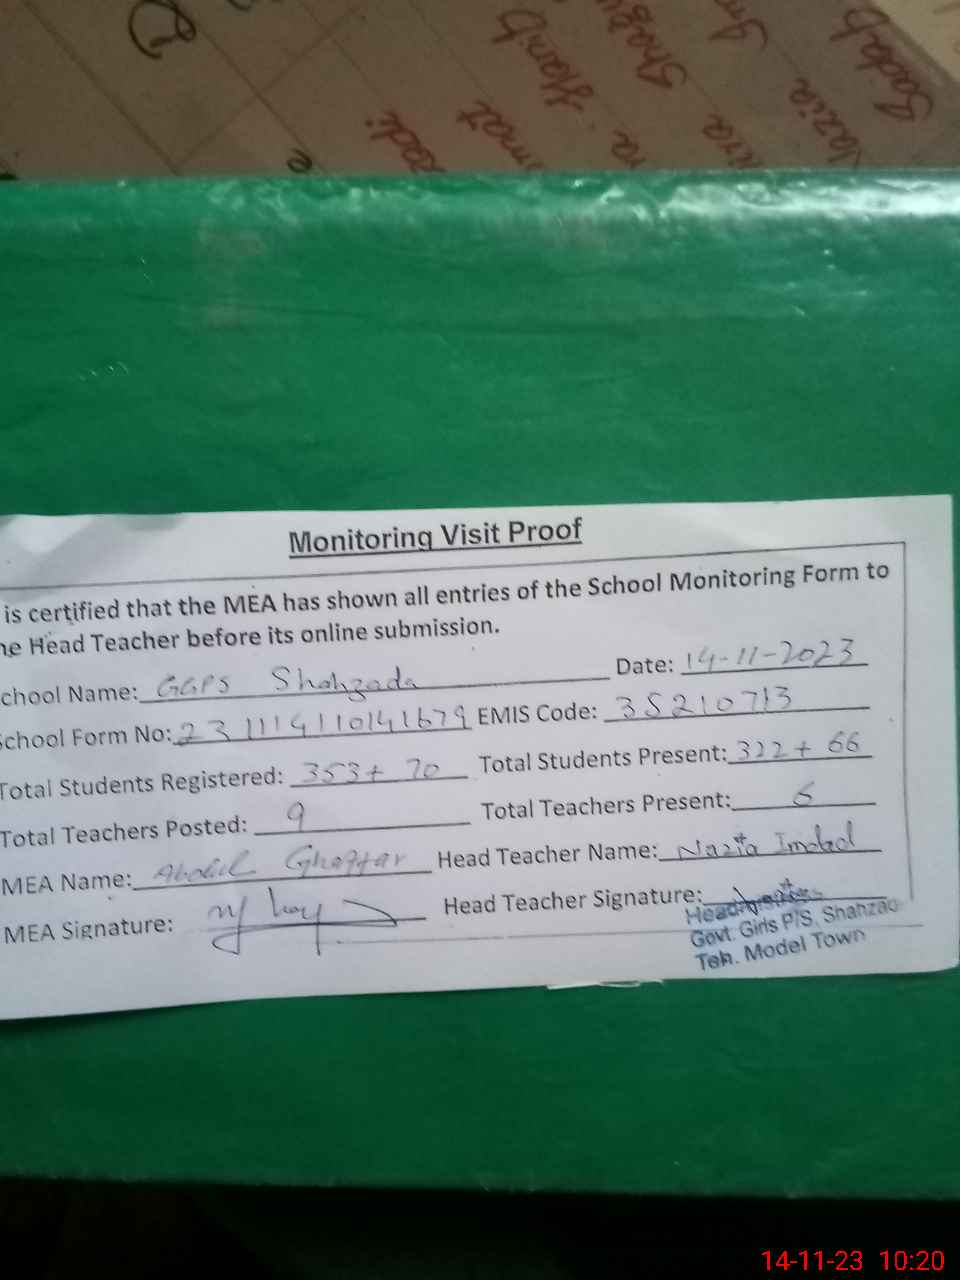 Monitoring Visit Proof
is certified that the MEA has shown all entries of the School Monitoring Form to
he Head Teacher before its online submission.
chool Name: GGPS Shahzada Date: 14-11-2023
School Form No: 23111411014 1679 EMIS Code: 35210713
Total Students Registered: 353+ 70 Total Students Present: 322+ 66
Total Teachers Posted: 9 Total Teachers Present: 6
MEA Name: Abdul Ghaffar Head Teacher Name: Nazia Imdad
MEA Signature: Head Teacher Signature:
Govt. Girls P/S, Shahzad
Teh. Model Town
14-11-23 10:20